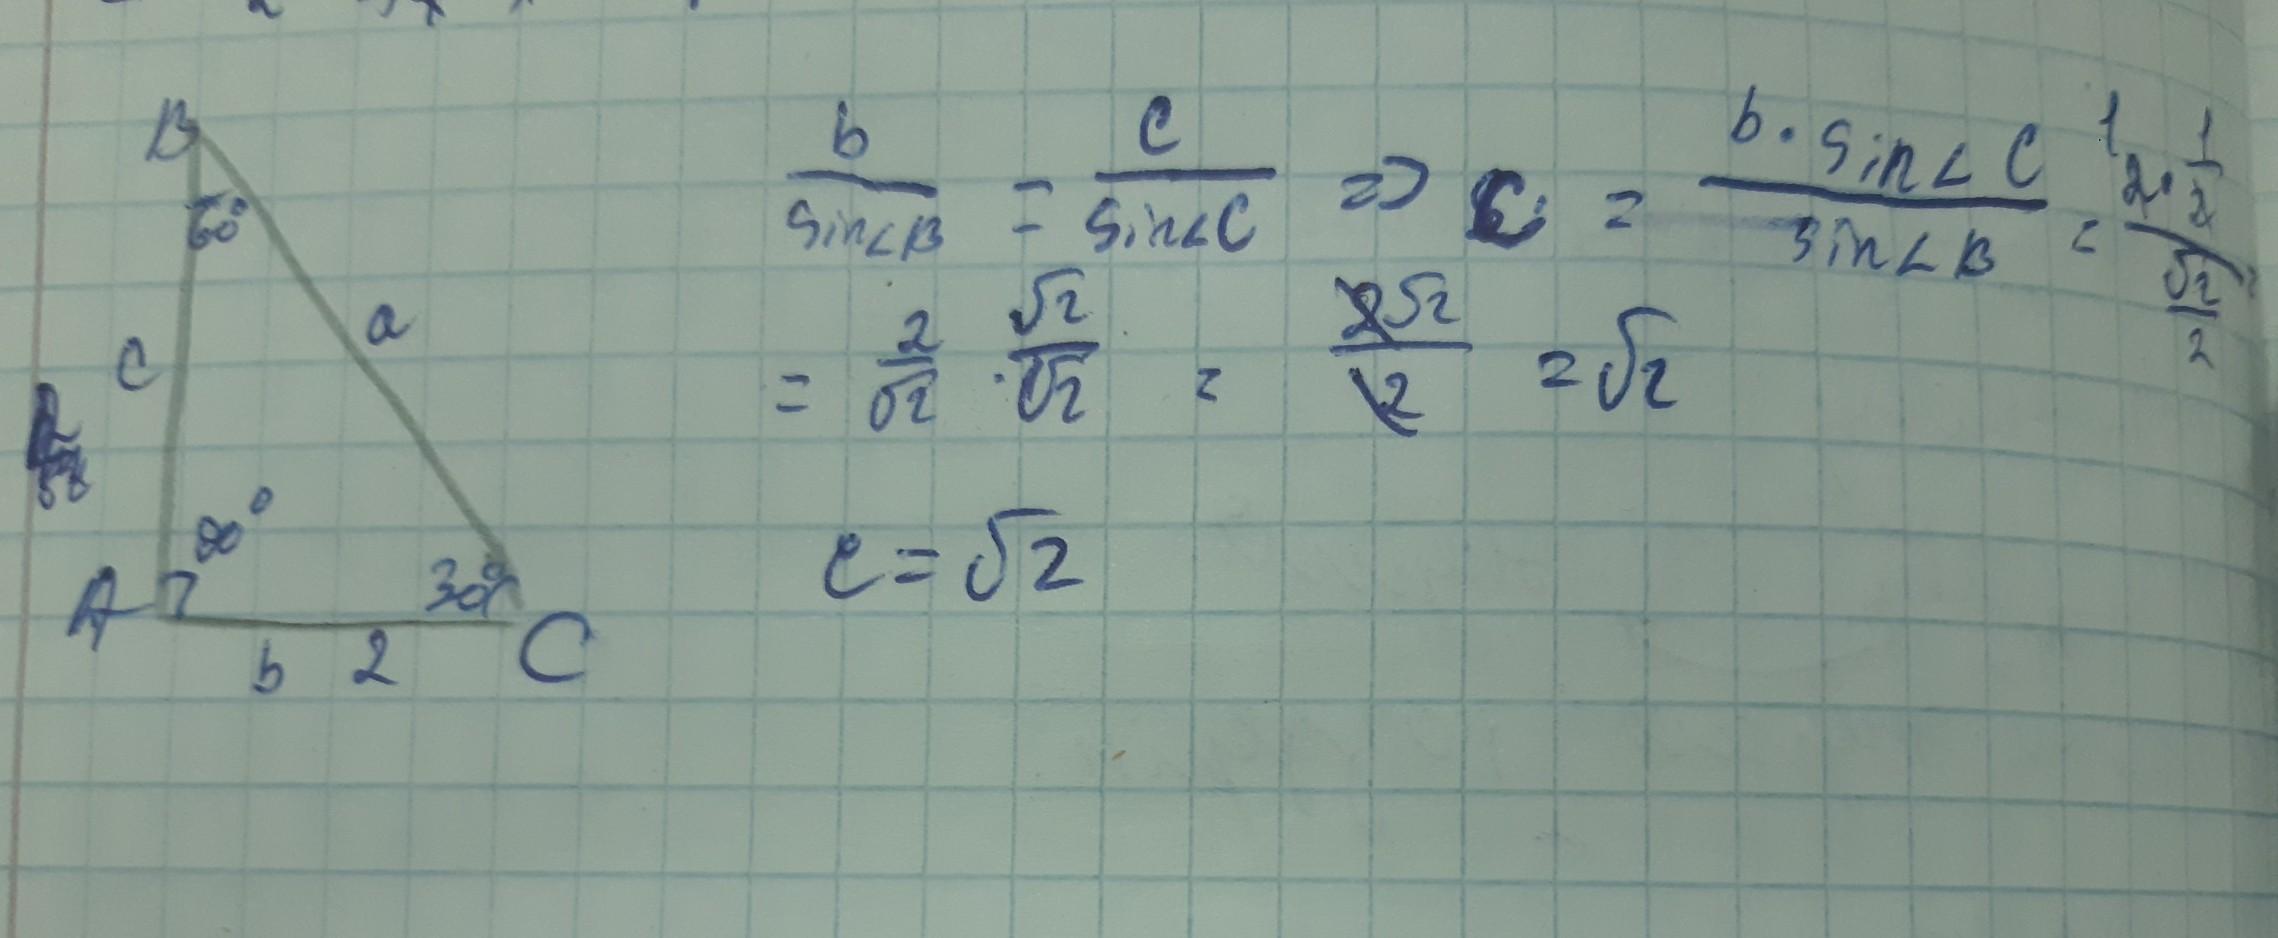 B
60°
c
a
90°
A
30°
b 2
C
b/sin∠B = c/sin∠C => c = b·sin∠C/sin∠B = (2·1/2)/(√2/2) =
= 2/√2 · √2/√2 = 2√2/2 = √2
c = √2